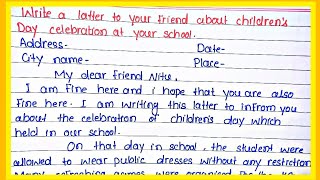 Write a latter to your friend about children's
Day celebration at your school.
Address- Date-
City name- Place-
My dear friend Nitu,
I am fine here and i hope that you are also
fine here. I am writing this latter to infrom you
about the celebration of children's day which
held in our school.
On that day in school, the student were
allowed to wear public dresses without any restriction
games were organised